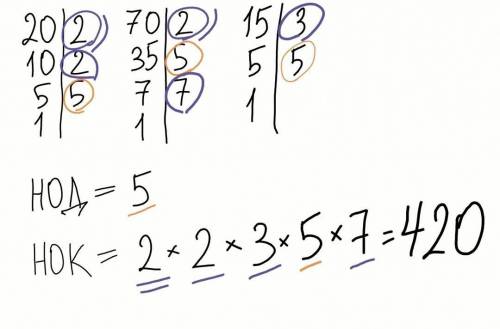 20 | 2 70 | 2 15 | 3
10 | 2 35 | 5 5 | 5
5 | 5 7 | 7 1
1 1
НОД = 5
НОК = 2 × 2 × 3 × 5 × 7 = 420